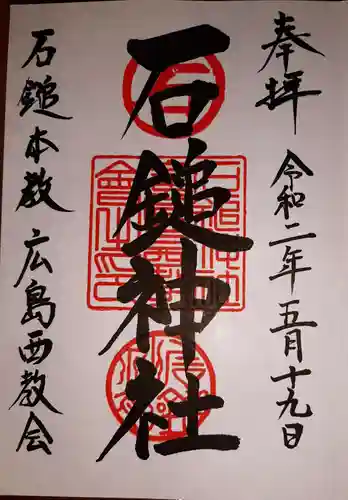 奉拝
令和二年五月十九日
石鎚神社
石鎚本教広島西教会